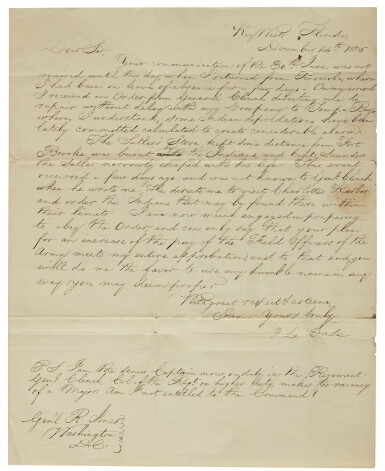 Key West, Florida
December 14th 1835
Dear Sir
Your communication of the 30th was not
received until this day, when I returned from where
I had been on leave of absence for a few days. On my arrival
I received an Order from General Clinch directing me to
repair without delay with my Company to Tampa Bay
where, I understand, some Indian depredations have been
lately committed calculated to create considerable alarm.
The Sutlers Store kept some distance from Fort
Brooke was burnt by the Indians and Capt. Saunders
the Sutler narrowly escaped with his life. This event
occurred a few days ago and was not known to Genl. Clinch
when he wrote me. He directs me to visit Charlotte Harbor
and order the Indians that may be found there within
their limits. I am now much engaged in preparing
to obey the Order, and can only say that your plan
for an increase of the pay of the Field Officers of the
Army meets my entire approbation, and to that end you
will do me the favor to use my humble name in any
way you may deem proper
With great respect & esteem
I am Yours truly
P.S. I am the Senior Captain now on duty in the Regiment
Genl. Clinch Col. of the Regt. on higher duty, makes the vacancy
of a Major. Am I not entitled to the Command?
Genl. R. Jones
Washington
D.C.